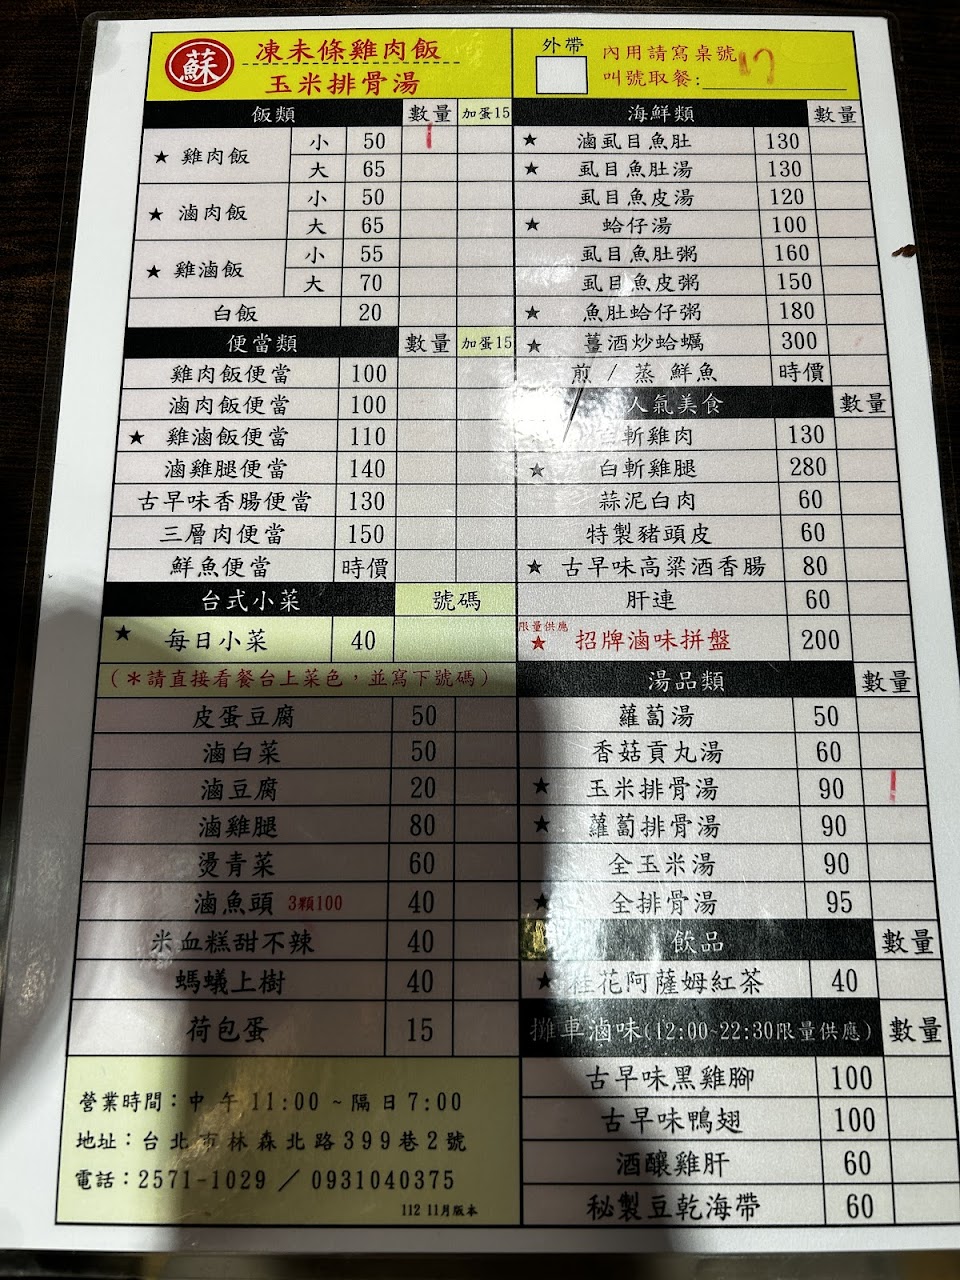 蘇
凍未條雞肉飯
玉米排骨湯
外帶
內用請寫桌號 17
叫號取餐:
飯類 數量 加蛋15
★ 雞肉飯 小 50 1
大 65
★ 滷肉飯 小 50
大 65
★ 雞滷飯 小 55
大 70
白飯 20
便當類 數量 加蛋15
雞肉飯便當 100
滷肉飯便當 100
★ 雞滷飯便當 110
滷雞腿便當 140
古早味香腸便當 130
三層肉便當 150
鮮魚便當 時價
台式小菜 號碼
★ 每日小菜 40
(＊請直接看餐台上菜色，並寫下號碼)
皮蛋豆腐 50
滷白菜 50
滷豆腐 20
滷雞腿 80
燙青菜 60
滷魚頭 3顆100 40
米血糕甜不辣 40
螞蟻上樹 40
荷包蛋 15
營業時間：中午11:00~隔日7:00
地址：台北市林森北路399巷2號
電話：2571-1029／0931040375
112 11月版本
海鮮類 數量
★ 滷虱目魚肚 130
★ 虱目魚肚湯 130
虱目魚皮湯 120
★ 蛤仔湯 100
虱目魚肚粥 160
虱目魚皮粥 150
★ 魚肚蛤仔粥 180
★ 薑酒炒蛤蠣 300
煎 / 蒸 鮮魚 時價
人氣美食 數量
白斬雞肉 130
★ 白斬雞腿 280
蒜泥白肉 60
特製豬頭皮 60
★ 古早味高粱酒香腸 80
肝連 60
限量供應
★ 招牌滷味拼盤 200
湯品類 數量
蘿蔔湯 50
香菇貢丸湯 60
★ 玉米排骨湯 90 1
★ 蘿蔔排骨湯 90
全玉米湯 90
★ 全排骨湯 95
飲品 數量
★ 桂花阿薩姆紅茶 40
攤車滷味(12:00~22:30限量供應) 數量
古早味黑雞腳 100
古早味鴨翅 100
酒釀雞肝 60
秘製豆乾海帶 60